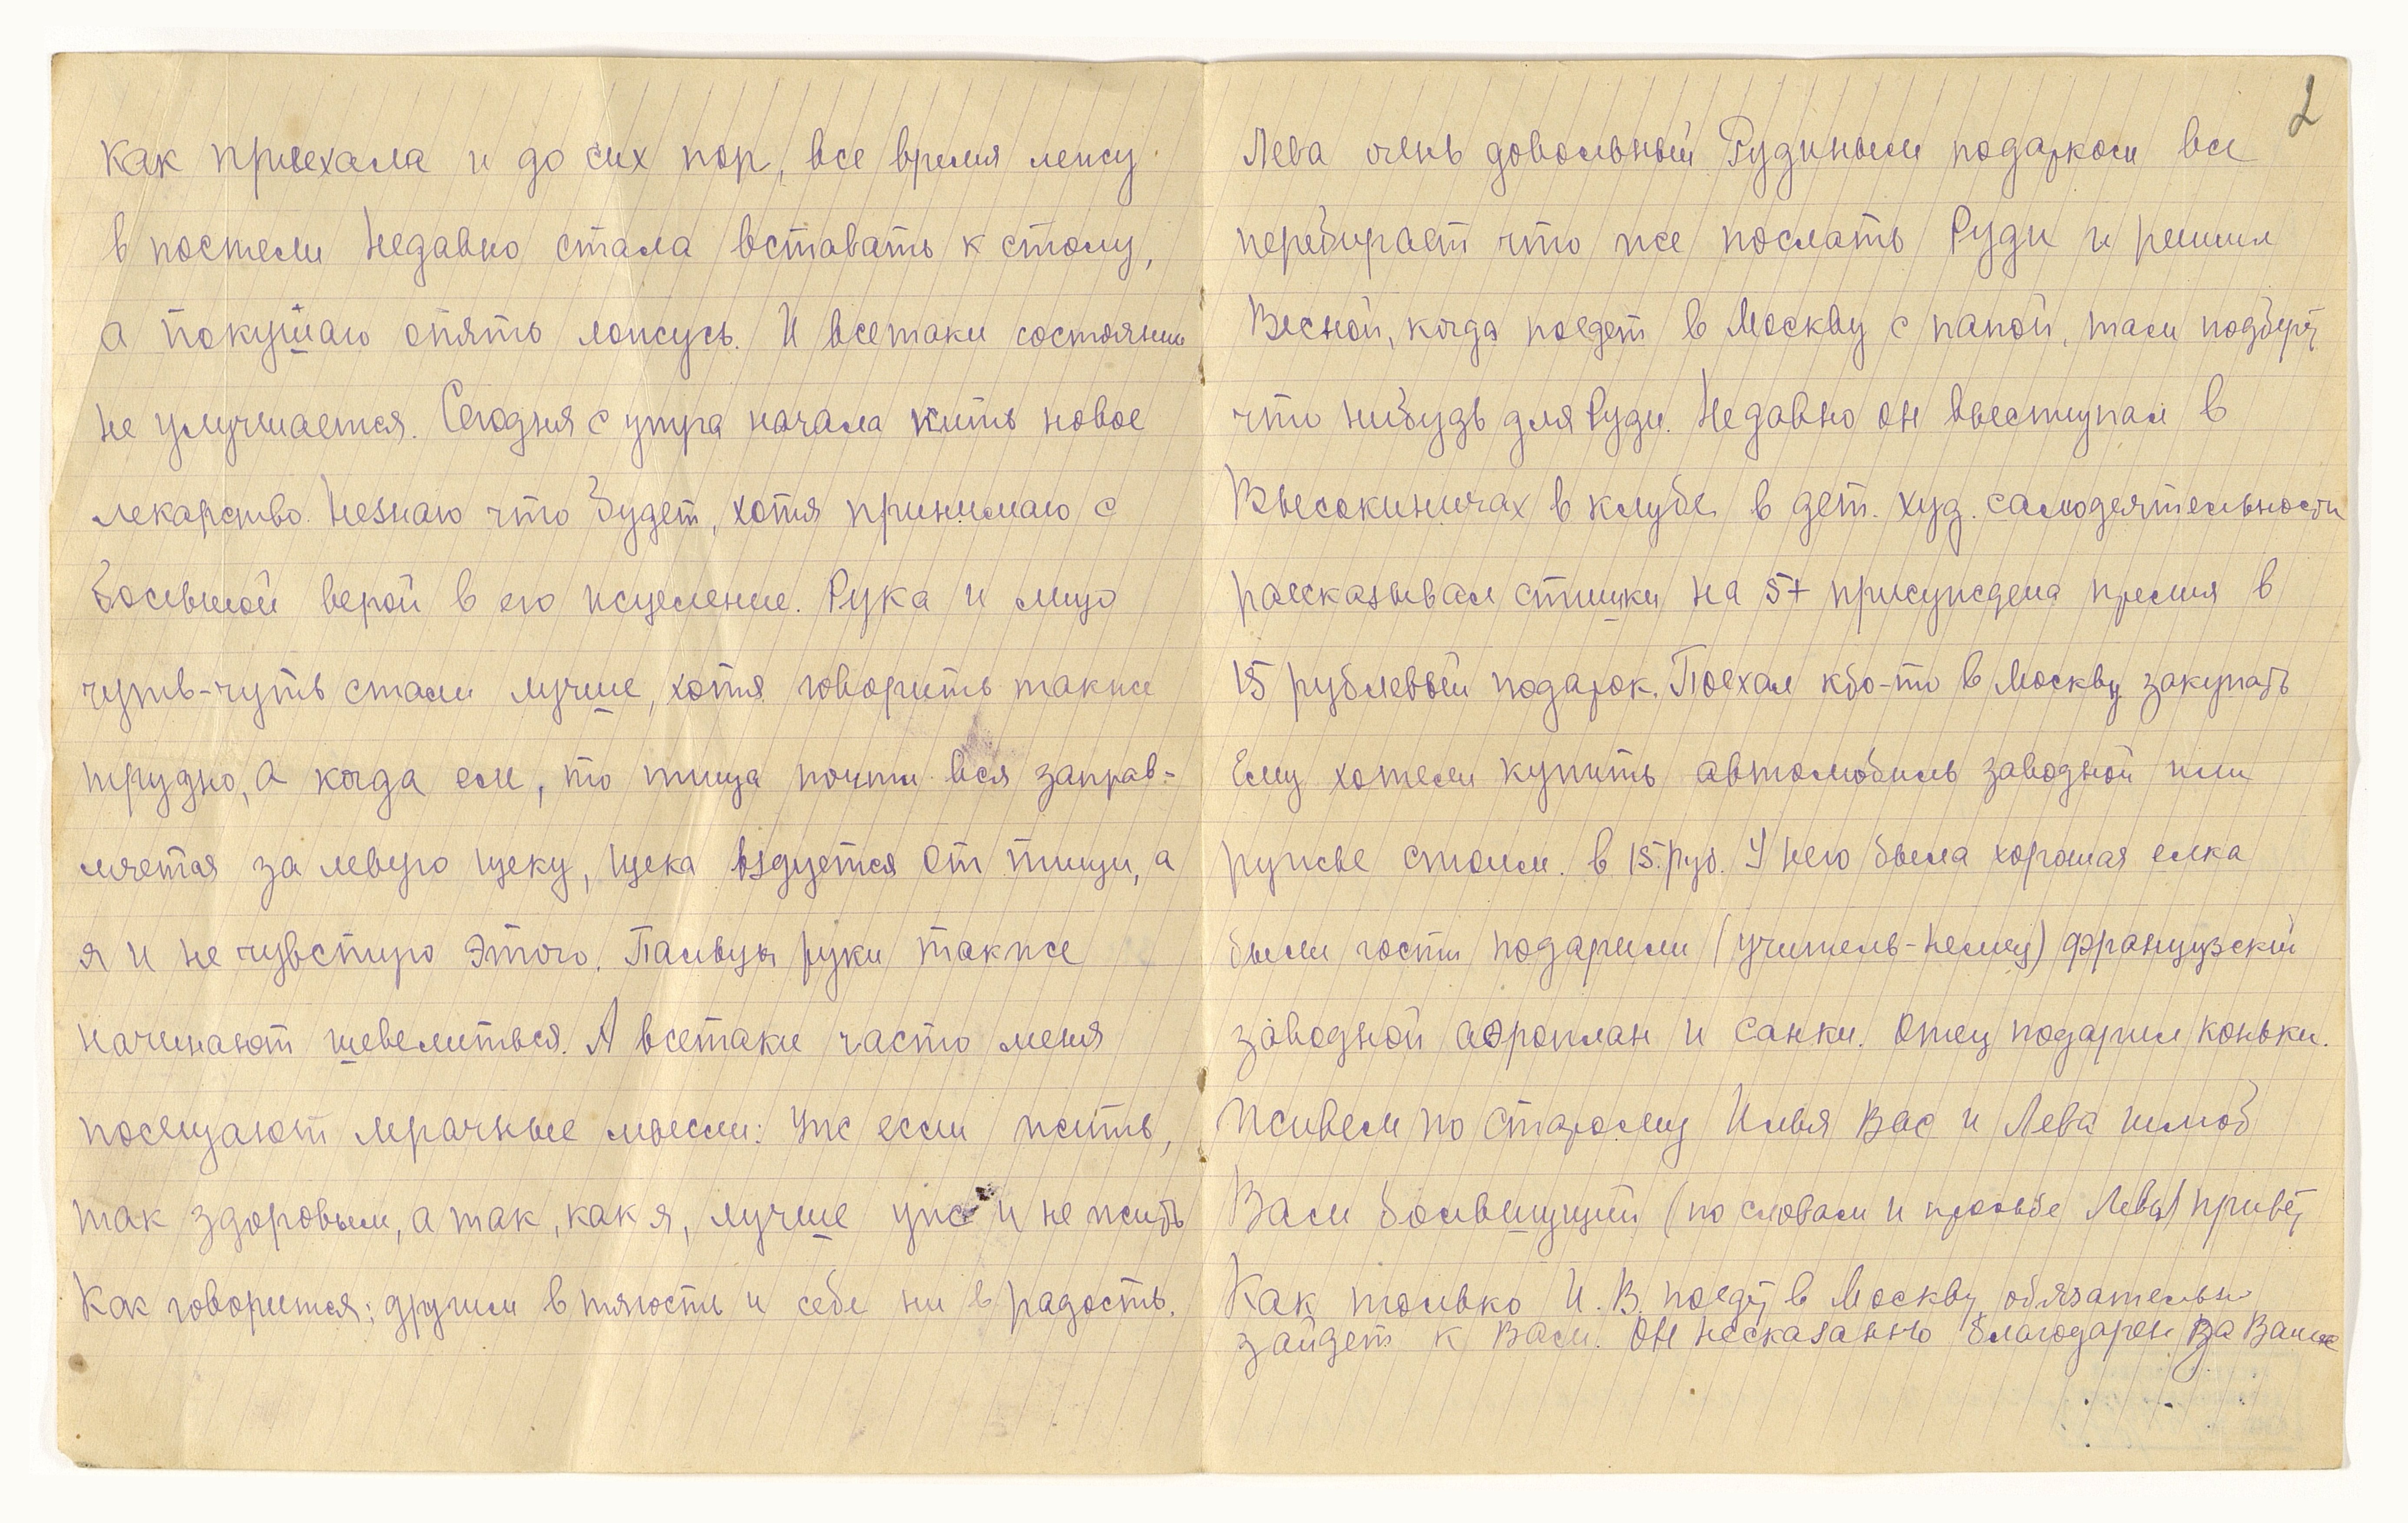 как приехала и до сих пор, все время лежу
в постели Недавно стала вставать к столу,
а покушаю опять ложусь. И всетаки состояние
не улучшается. Сегодня с утра начала пить новое
лекарство. Незнаю что будет, хотя принимаю с
большой верой в его исцеление. Рука и лицо
чуть-чуть стали лучше, хотя говорить также
трудно, а когда ем, то пища почти вся заправ-
ляется за левую щеку, щека вздуется от пищи, а
я и не чувствую этого. Пальцы руки также
начинают шевелиться. А всетаки часто меня
посещают мрачные мысли: Уж если жить,
так здоровым, а так, как я, лучше уж и не жить
Как говорится: другим в тягость и себе ни в радость.
2
Лева очень довольный Рудиным подарком все
перебирает что же послать Руди и решил
Весной, когда поедет в Москву с папой, там подберут
что нибудь для Руди. Недавно он выступал в
Высокиничах в клубе в дет. худ. самодеятельности
рассказывал стишки на 5+ присуждена премия в
15 рублевый подарок. Поехал кто-то в Москву закупать
Ему хотели купить автомобиль заводной или
ружье стоим. в 15.руб. У него была хорошая елка
были гости подарили (учитель-немец) французский
заводной аэроплан и санки. Отец подарил коньки.
Живем по старому Илья Вас и Лева шлют
Вам большущий (по словам и просьбе Левы) привет
Как только И. В. поедет в Москву, обязательно
зайдет к Вам. Он несказанно благодарен за Ваше